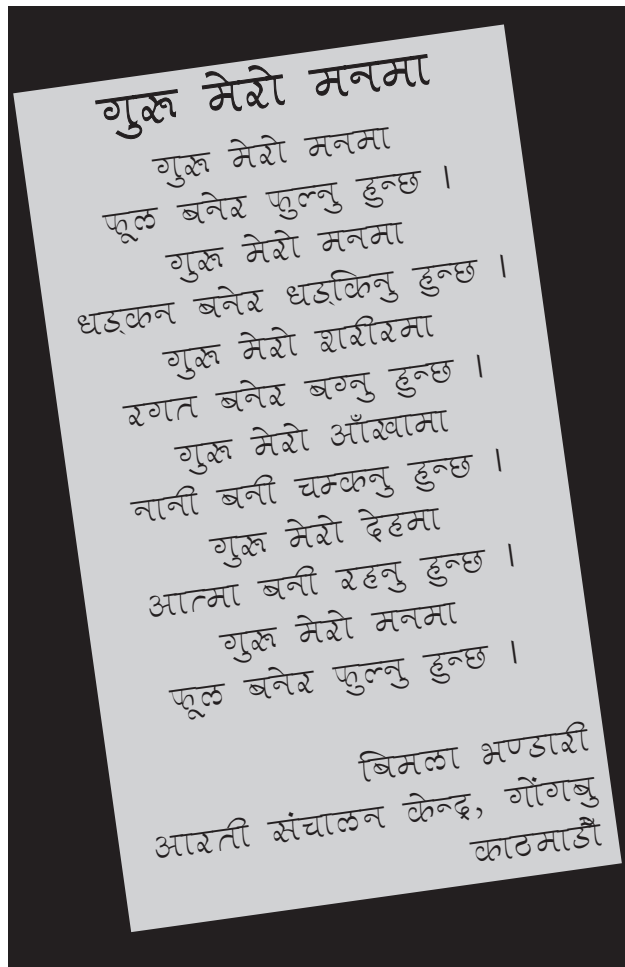 गुरू मेरो मनमा
गुरू मेरो मनमा
फूल बनेर फुल्नु हुन्छ ।
गुरू मेरो मनमा
धड्कन बनेर धड्किनु हुन्छ ।
गुरू मेरो शरीरमा
रगत बनेर बग्नु हुन्छ ।
गुरू मेरो आँखामा
नानी बनी चम्कनु हुन्छ ।
गुरू मेरो देहमा
आत्मा बनी रहनु हुन्छ ।
गुरू मेरो मनमा
फूल बनेर फुल्नु हुन्छ ।
बिमला भण्डारी
आरती संचालन केन्द्र, गोंगबु
काठमाडौं